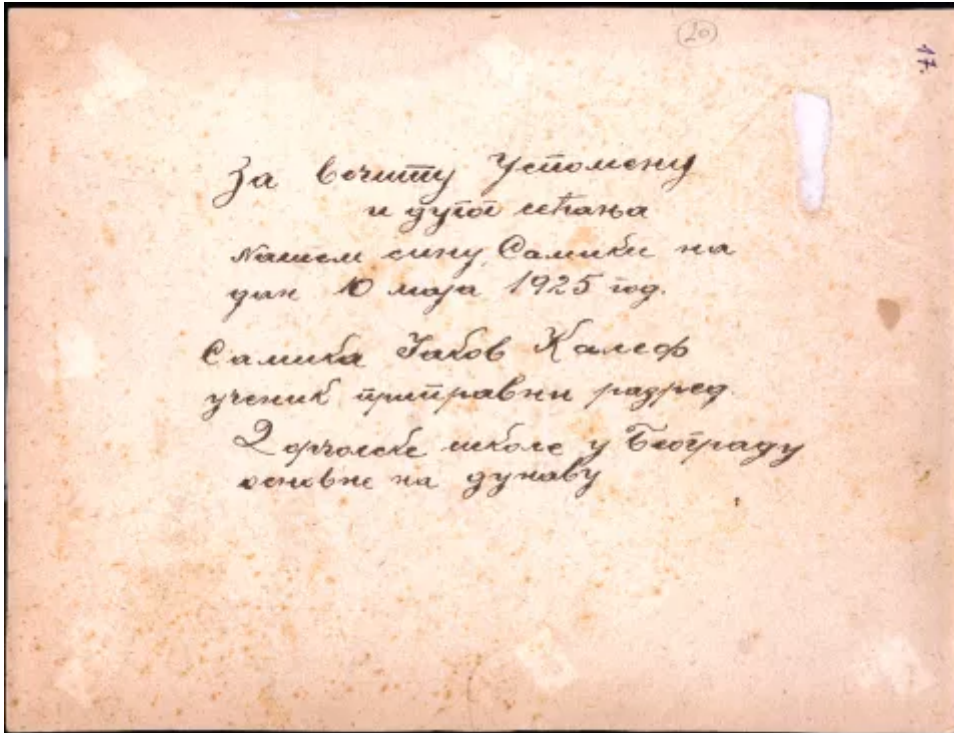 20
17.
За вечиту Успомену
и дугог сећања
Нашем сину Самики на
дан 10 маја 1925 год.
Самика Јаков Калеф
ученик приправни разред.
школе у Београду
основне на дунаву